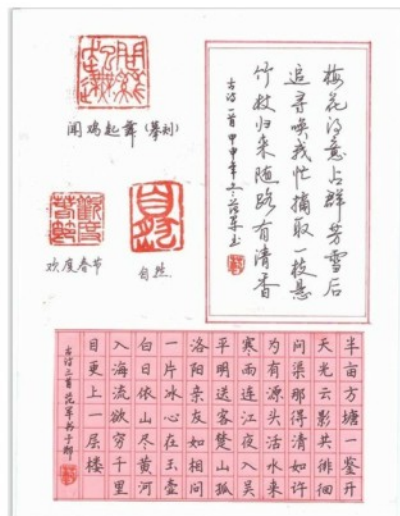 聞雞起舞
闻鸡起舞(摹刻)
歡度春節
欢度春节
自然
自然
梅花得意占群芳雪后
追寻唤我忙摘取一枝悬
竹杖归来随路有清香
古诗一首甲申年冬范军书
半亩方塘一鉴开
天光云影共徘徊
问渠那得清如许
为有源头活水来
寒雨连江夜入吴
平明送客楚山孤
洛阳亲友如相问
一片冰心在玉壶
白日依山尽黄河
入海流欲穷千里
目更上一层楼
古诗三首范军书于